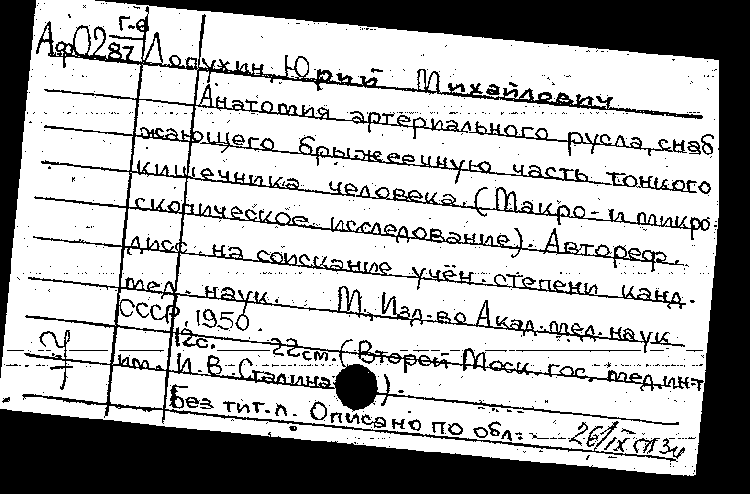 Г-9
Аф02 87 Лопухин, Юрий Михайлович
Анатомия артериального русла, снаб
жающего брыжеечную часть тонкого
кишечника человека. (Макро- и микро-
скопическое исследование). Автореф.
дисс. на соискание учён. степени канд.
мед. наук. М., Изд-во Акад. мед. наук
СССР, 1950.
12с. 22см. (Второй Моск. гос. мед. ин-т
им. И. В. Сталина).
Без тит. л. Описано по обл.